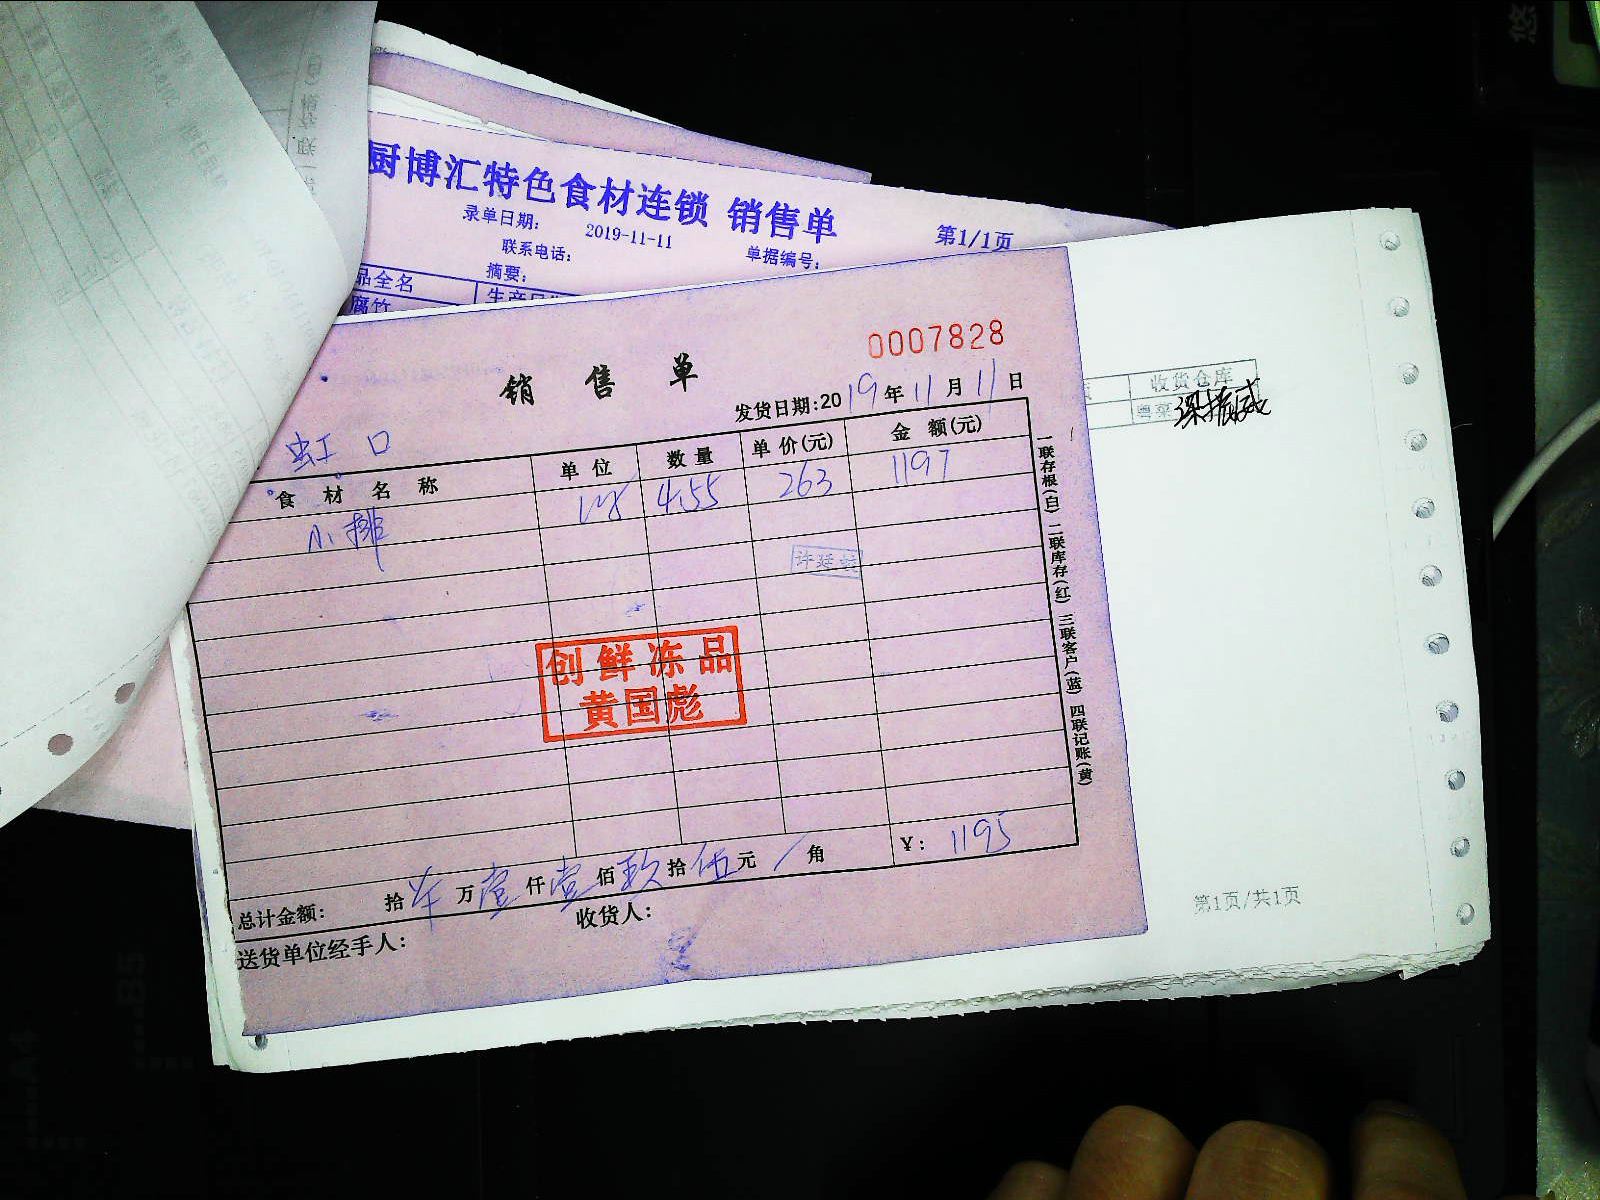 厨博汇特色食材连锁 销售单
录单日期： 2019-11-11
第1/1页
联系电话： 单据编号：
摘要：
品全名
腐竹
0007828
销售单
发货日期:2019年11月11日
虹口
食材名称 单位 数量 单价(元) 金额(元)
小排 4.55 263 1197
许廷
创鲜冻品
黄国彪
一联存根(白) 二联库存(红) 三联客户(蓝) 四联记账(黄)
总计金额： 拾 万壹仟壹佰玖拾伍元/角 ¥: 1195
送货单位经手人： 收货人：
收货仓库
第1页/共1页